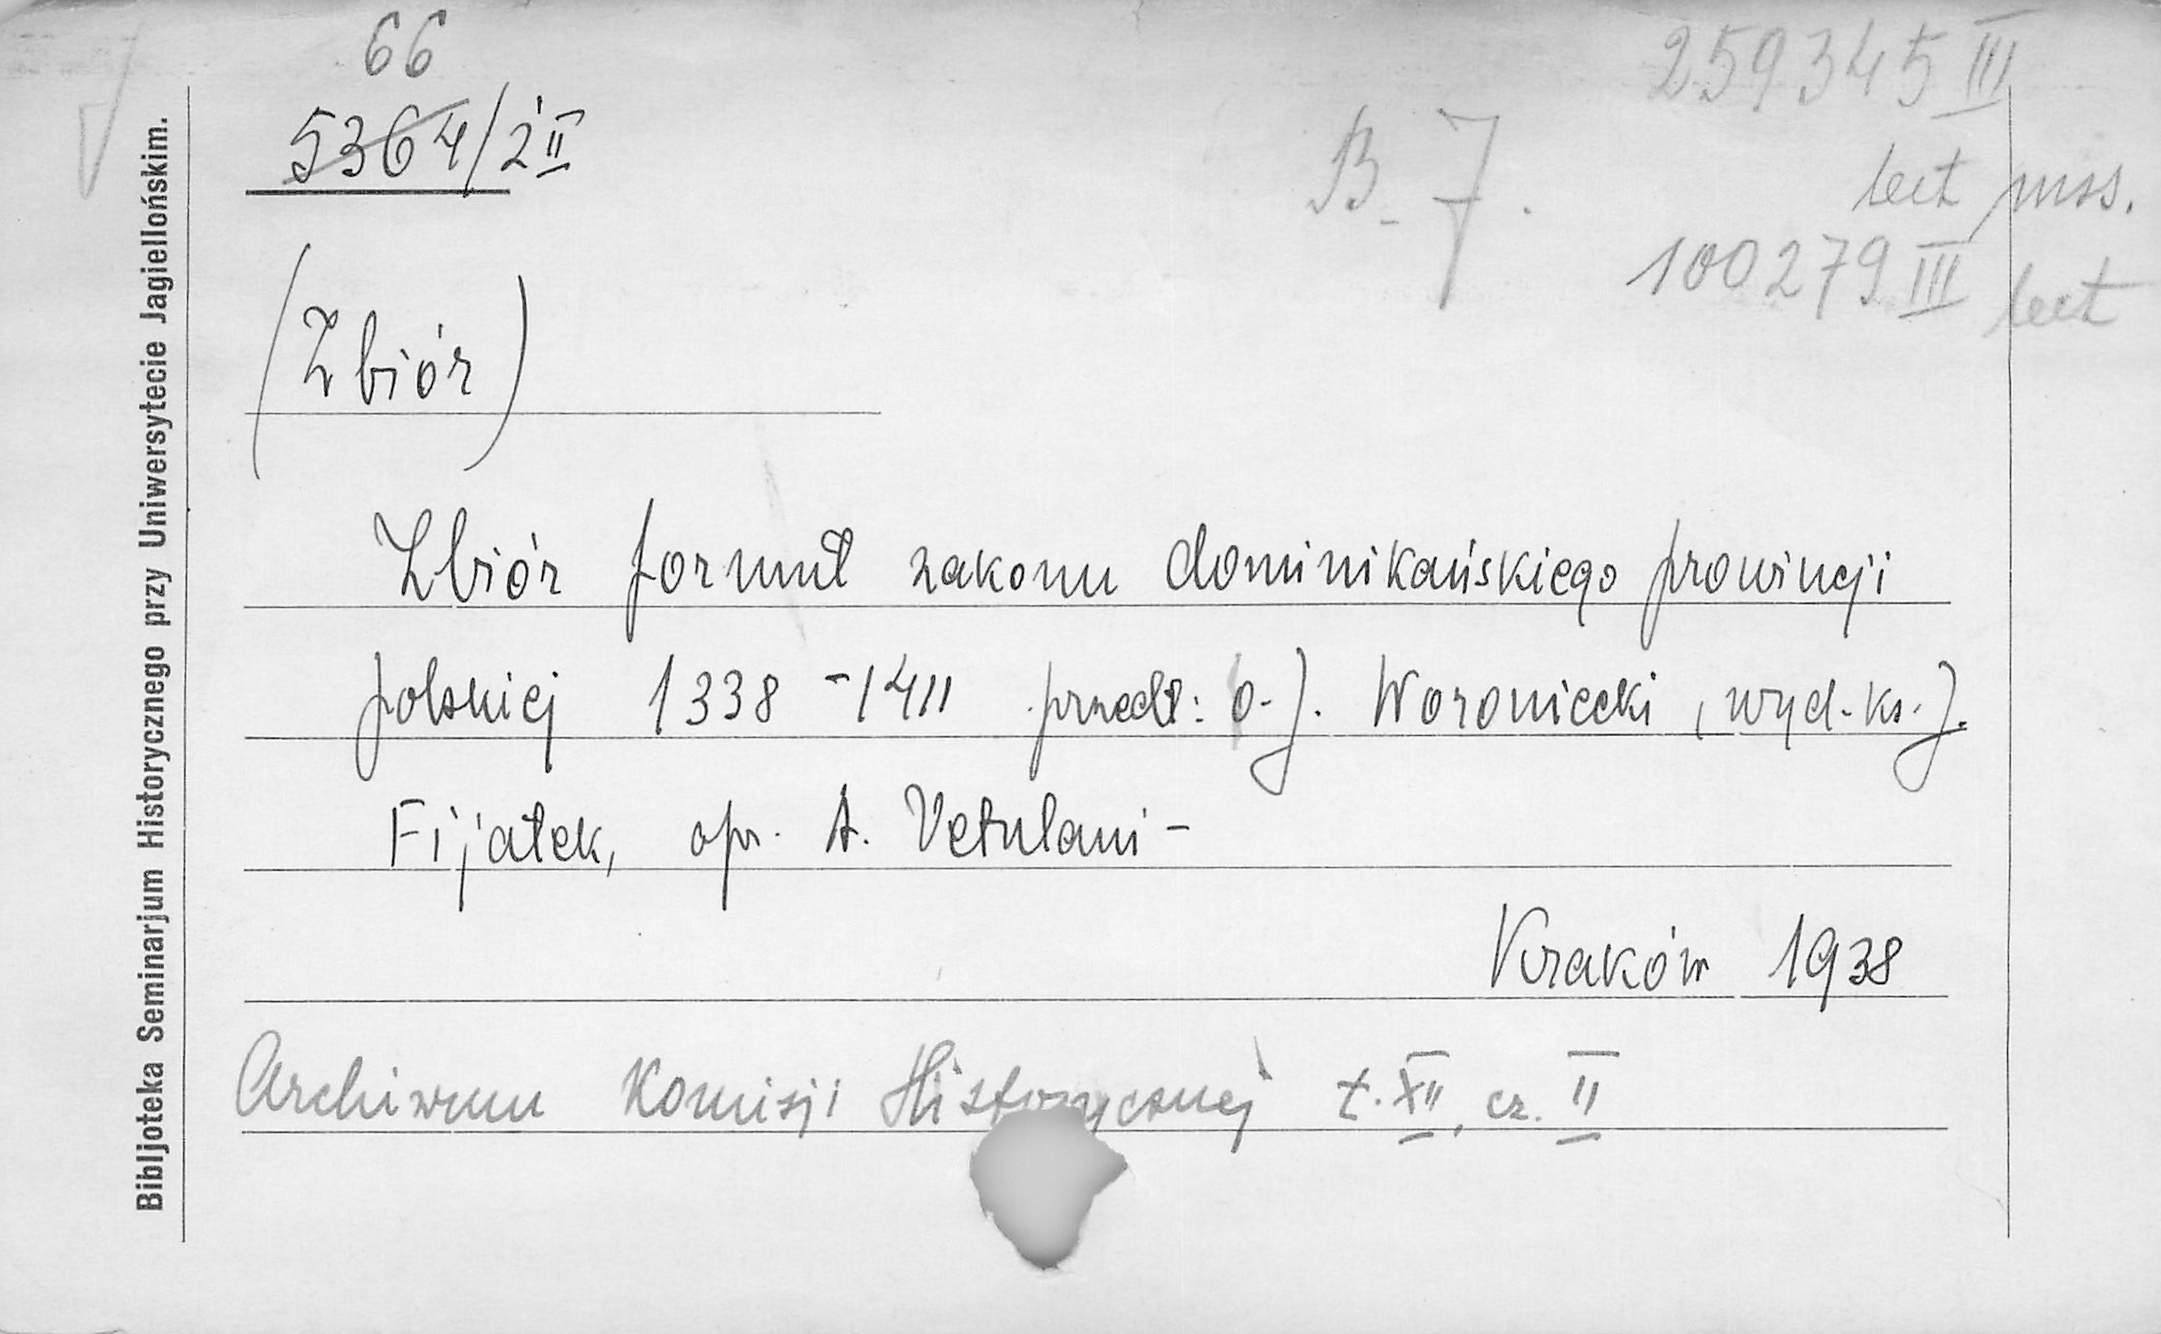 66
5364/2 II
259345 III
lect mss.
B-7.
100279 III lect
(Zbiór)
Zbiór formuł zakonu dominikańskiego prowincji
polskiej 1338-1411 przedł: o. J. Woroniecki, wyd. ks. J.
Fijałek, opr. A. Vetulani-
Kraków 1938
Archiwum Komisji Historycznej t. XII, cz. II
Bibljoteka Seminarjum Historycznego przy Uniwersytecie Jagiellońskim.